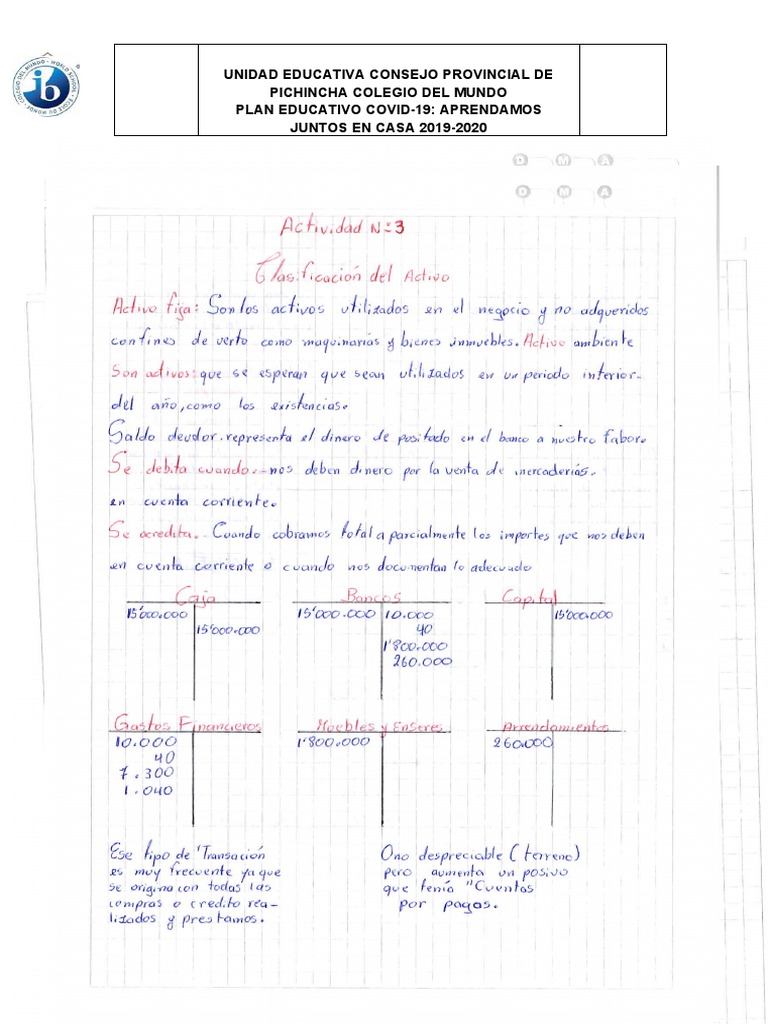 UNIDAD EDUCATIVA CONSEJO PROVINCIAL DE
PICHINCHA COLEGIO DEL MUNDO
PLAN EDUCATIVO COVID-19: APRENDAMOS
JUNTOS EN CASA 2019-2020
ib
COLEGIO DEL MUNDO · WORLD SCHOOL · ÉCOLE DU MONDE
D M A
D M A
Actividad N:3
Clasificación del Activo
Activo fija: Son los activos utilizados en el negocio y no adqueridos
confines de verto como maquinarias y bienes inmuebles. Activo ambiente
Son activos: que se esperan que sean utilizados en un periodo interior-
del año, como los existencias.
Saldo deudor. representa el dinero de positado en el banco a nuestro fabor.
Se debita cuando.-nos deben dinero por la venta de mercaderias.
en cuenta corriente.
Se acredita.. Cuando cobramos total a parcialmente los importes que nos deben
en cuenta corriente o cuando nos documentan lo adecuado
Caja Bancos Capital
15'000.000 15'000.000 10.000 15'000.000
15'000.000 40
1'800.000
260.000
Gastos Financieros Muebles y Enseres Arrendamientos
10.000 1'800.000 260.000
40
7.300
1.040
Ese tipo de 'Transación
es muy frecuente ya que
se origina con todas las
compras o credito rea-
lizados y prestamos.
Ono despreciable (terreno)
pero aumenta un posivo
que tenía "Cuentas
por pagas.